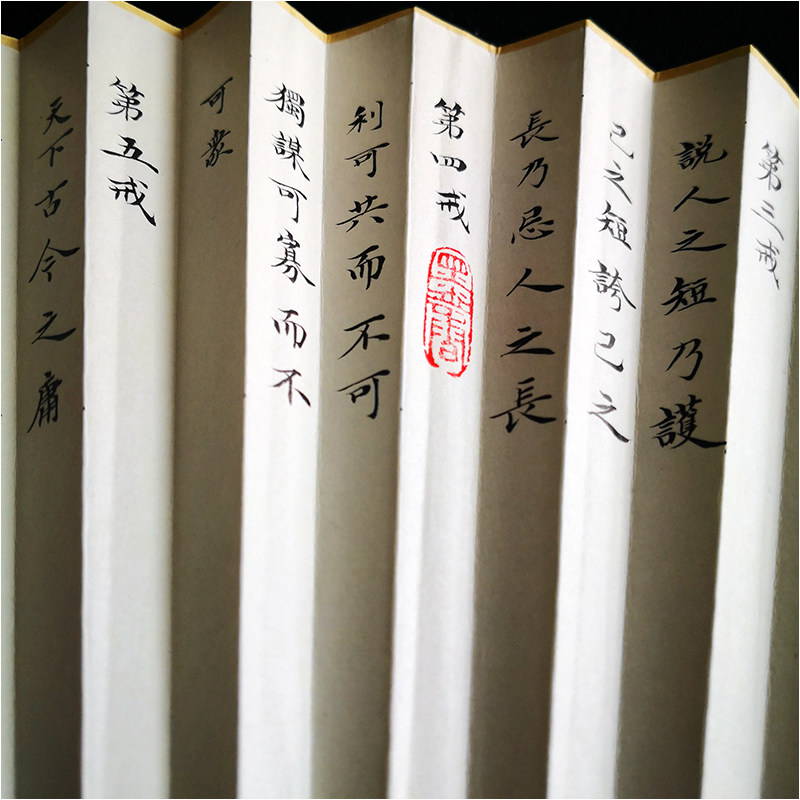 第三戒
説人之短乃護
己之短誇己之
長乃忌人之長
第四戒
利可共而不可
獨謀可寡而不
可衆
第五戒
天下古今之庸